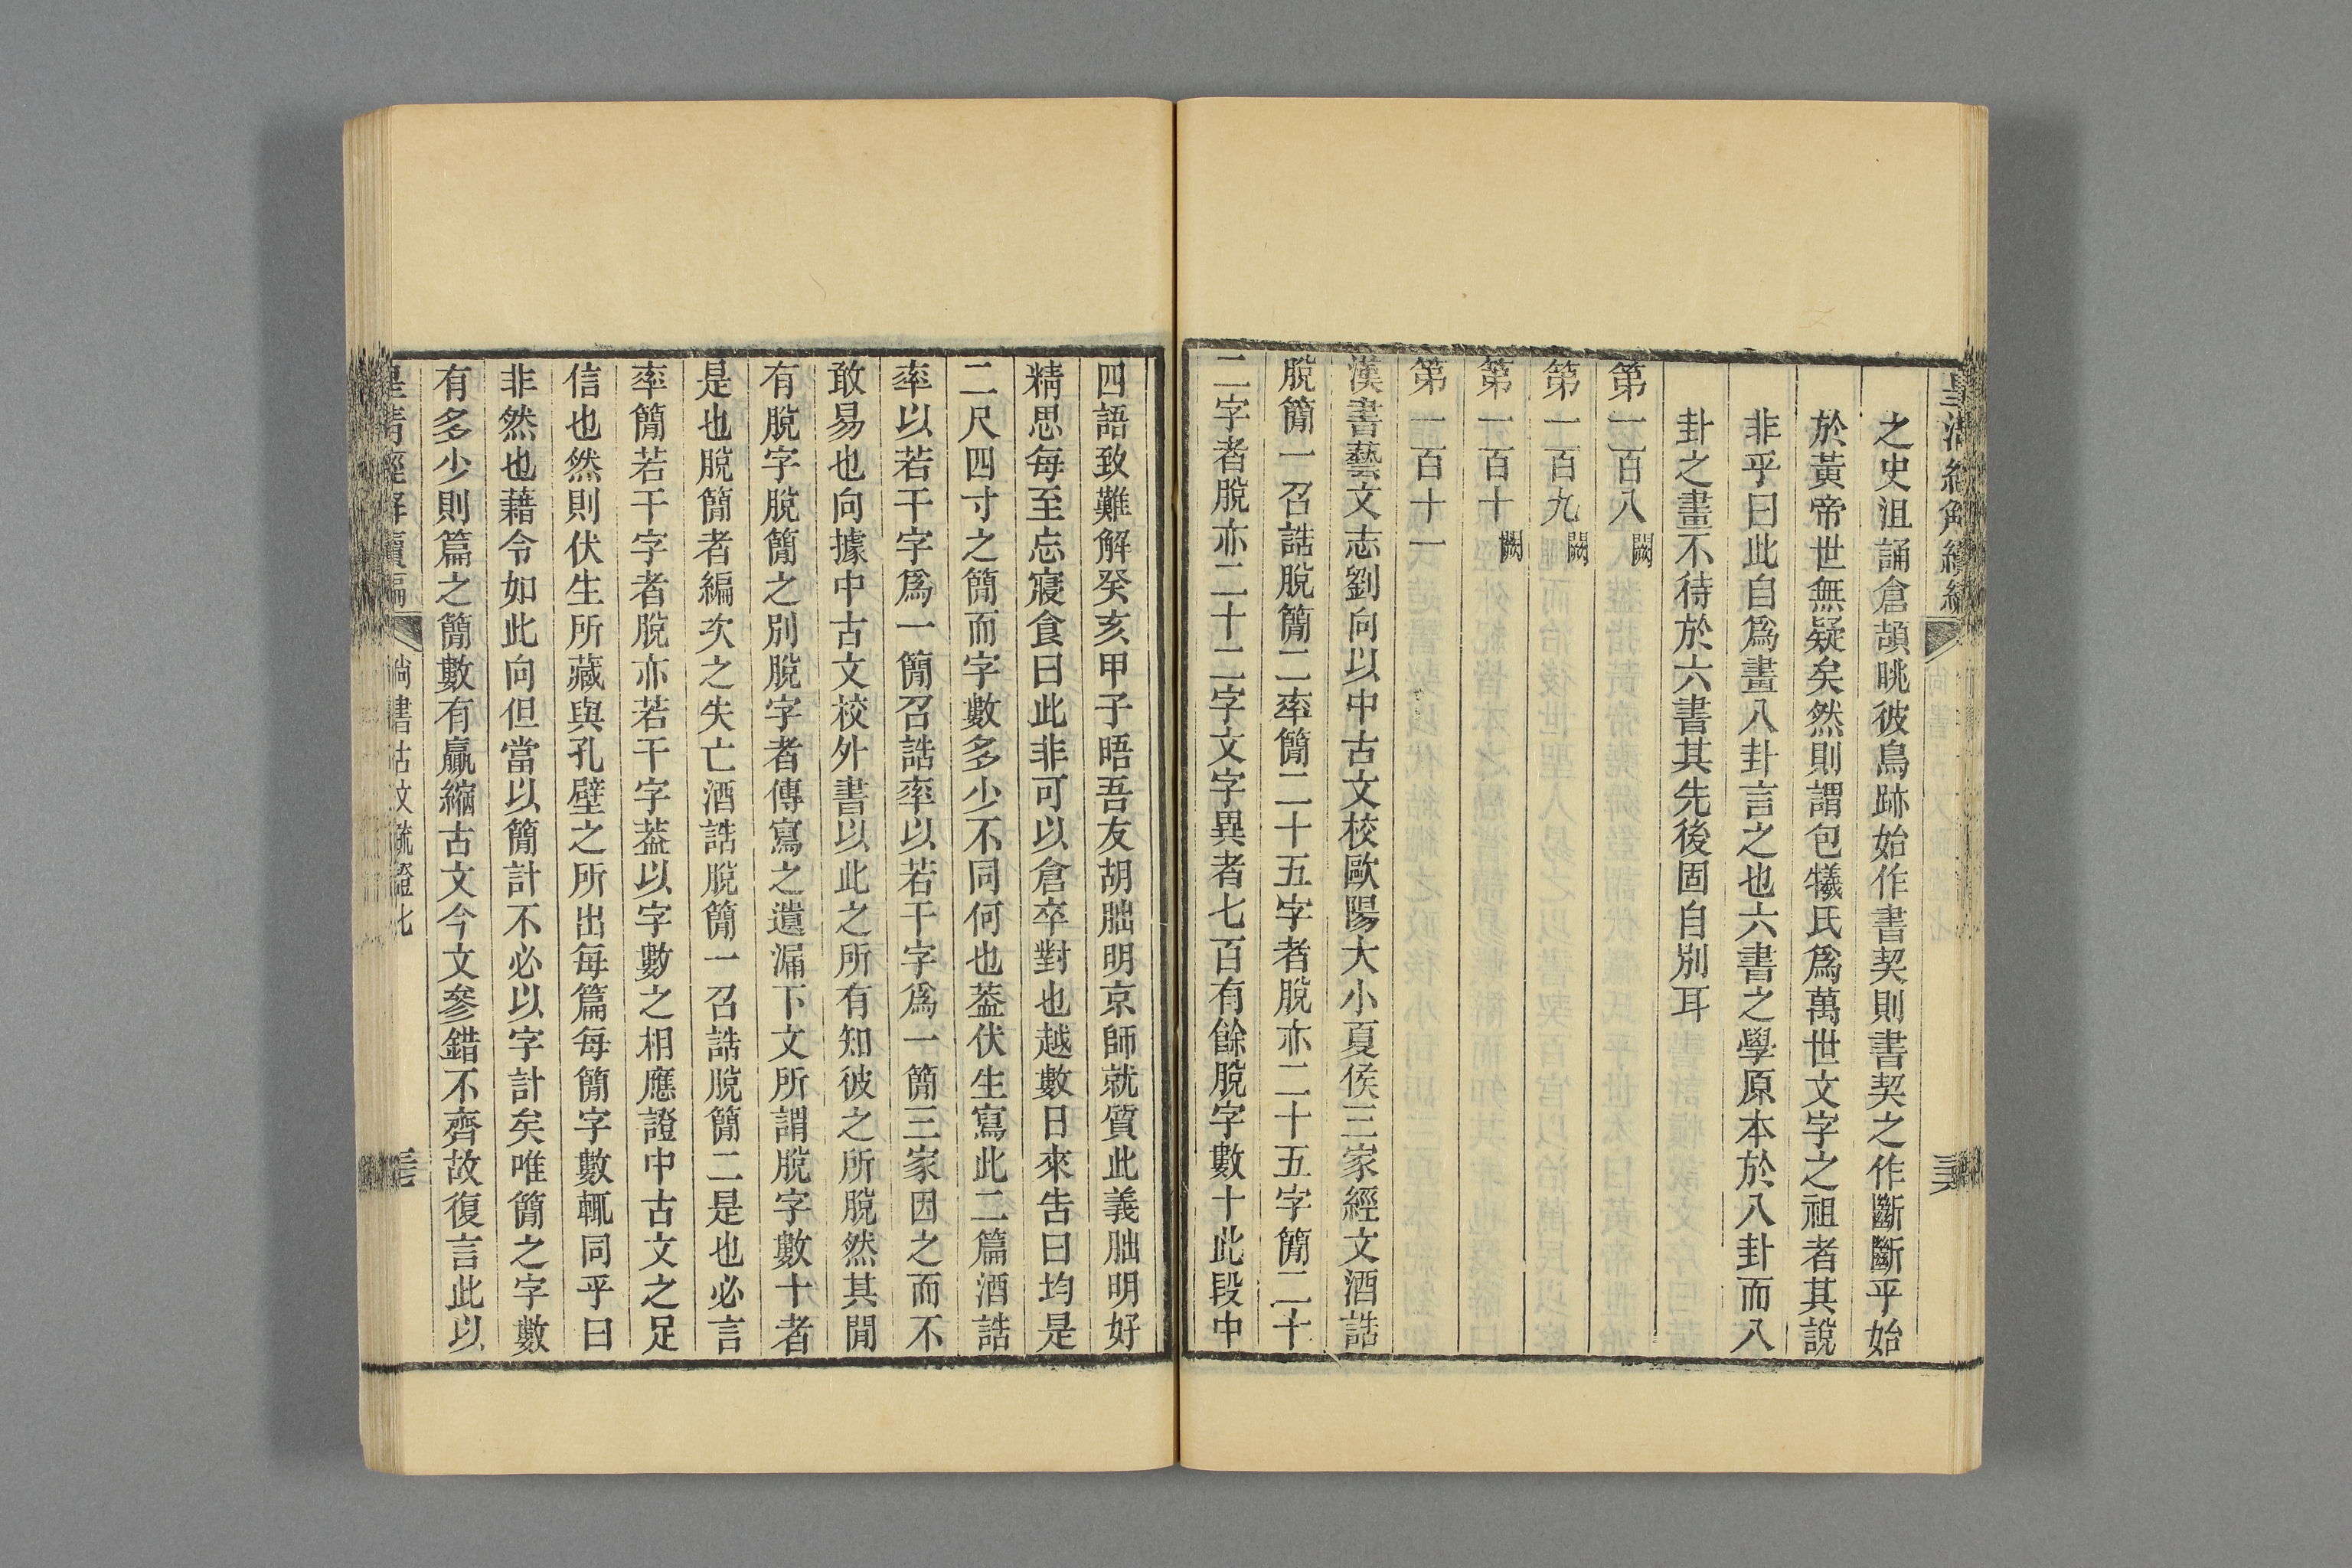 之史沮誦倉頡眺彼鳥跡始作書契則書契之作斷斷乎始
於黃帝世無疑矣然則謂包犧氏爲萬世文字之祖者其說
非乎曰此自爲畫八卦言之也六書之學原本於八卦而八
卦之畫不待於六書其先後固自別耳
第一百八闕
第一百九闕
第一百十闕
第一百十一
漢書藝文志劉向以中古文校歐陽大小夏侯三家經文酒誥
脫簡一召誥脫簡二率簡二十五字者脫亦二十五字簡二十
二字者脫亦二十二字文字異者七百有餘脫字數十此段中
四語致難解癸亥甲子晤吾友胡朏明京師就質此義朏明好
精思每至忘寢食曰此非可以倉卒對也越數日來告曰均是
二尺四寸之簡而字數多少不同何也葢伏生寫此二篇酒誥
率以若干字爲一簡召誥率以若干字爲一簡三家因之而不
敢易也向據中古文校外書以此之所有知彼之所脫然其閒
有脫字脫簡之別脫字者傳寫之遺漏下文所謂脫字數十者
是也脫簡者編次之失亡酒誥脫簡一召誥脫簡二是也必言
率簡若干字者脫亦若干字葢以字數之相應證中古文之足
信也然則伏生所藏與孔壁之所出每篇每簡字數輒同乎曰
非然也藉令如此向但當以簡計不必以字計矣唯簡之字數
有多少則篇之簡數有贏縮古文今文參錯不齊故復言此以